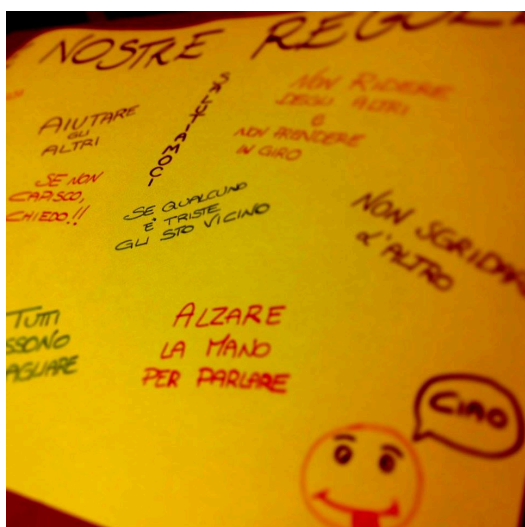 NOSTRE REGOLE
SALUTIAMOCI
NON RIDERE
DEGLI ALTRI
E
NON PRENDERE
IN GIRO
AIUTARE
GLI
ALTRI
SE NON
CAPISCO,
CHIEDO!!
SE QUALCUNO
È TRISTE
GLI STO VICINO
NON SGRIDAR
L'ALTRO
TUTTI
SSONO
AGLIARE
ALZARE
LA MANO
PER PARLARE
CIAO